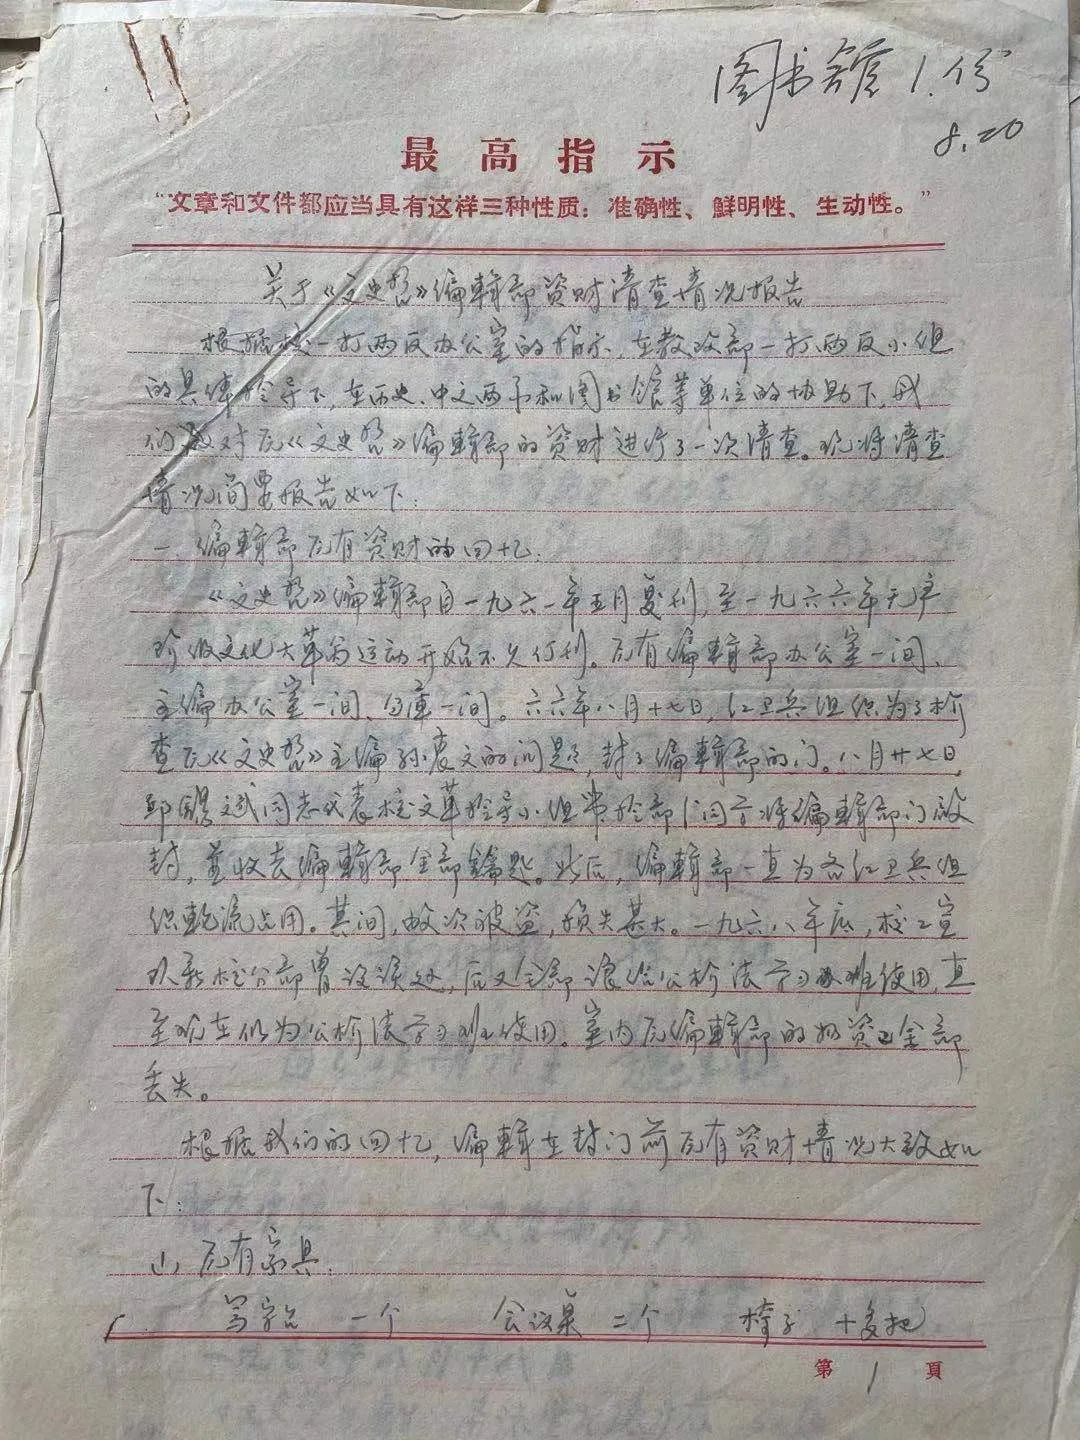 图书馆1份
8.20
最高指示
“文章和文件都应当具有这样三种性质：准确性、鮮明性、生动性。”
关于《文史哲》编輯部资财清查情况报告
根据校一打两反办公室的指示，在教改部一打两反小组
的具体领导下，在历史、中文两系和图书馆等单位的协助下，我
们对原《文史哲》编輯部的资财进行了一次清查。现将清查
情况简要报告如下：
一、编輯部原有资财的回忆．
《文史哲》编輯部自一九六一年五月复刊，至一九六六年无产
阶级文化大革命运动开始不久停刊。原有编輯部办公室一间、
主编办公室一间、仓库一间。六六年八月十七日，红卫兵组织为了检
查原《文史哲》主编孙衷文的问题，封了编輯部的门。八月廿七日，
同志代表校文革领导小组带领部分同学将编輯部门启
封，並收去编輯部全部鑰匙。此后，编輯部一直为各红卫兵组
织轮流占用。其间，数次被盗，损失甚大。一九六八年底，校工宣
队新校分部曾设该处，后又全部借给公检法学习班使用，直
至现在仍为公检法学习班使用。室内原编輯部的物资已全部
丢失。
根据我们的回忆，编輯在封门前原有资财情况大致如
下：
(1) 原有家具：
写字台 一个 会议桌 二个 椅子 十多把
第 1 頁